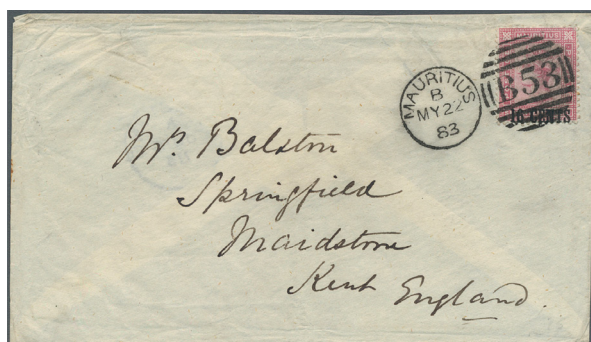 MAURITIUS
MAURITIUS
B
MY 22
83
B53
16 CENTS
Mrs Balston
Springfield
Maidstone
Kent England.